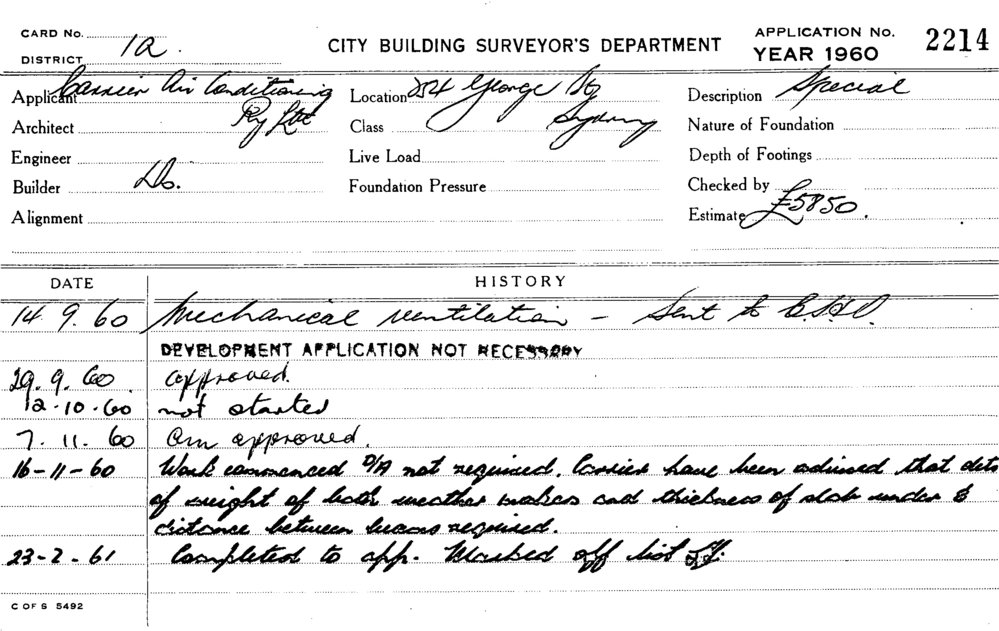 CARD No.
DISTRICT 1a.
CITY BUILDING SURVEYOR'S DEPARTMENT
APPLICATION No. 2214
YEAR 1960
Applicant Carrier Air Conditioning Location 254 George St, Description Special
Architect Pty Ltd Class Sydney Nature of Foundation
Engineer Live Load Depth of Footings
Builder Do. Foundation Pressure Checked by
Alignment Estimate £5850.
DATE HISTORY
14 9. 60 Mechanical ventilation - Sent to C.H.O.
DEVELOPMENT APPLICATION NOT NECESSARY
29. 9. 60 approved.
12-10-60 not started
7. 11. 60 Am approved.
16-11-60 Work commenced D/A not required. Carrier have been advised that dets
of weight of both weather makers and thickness of slab under &
distance between beams required.
23-2-61 Completed to app. Marked off list
C OF S 5492